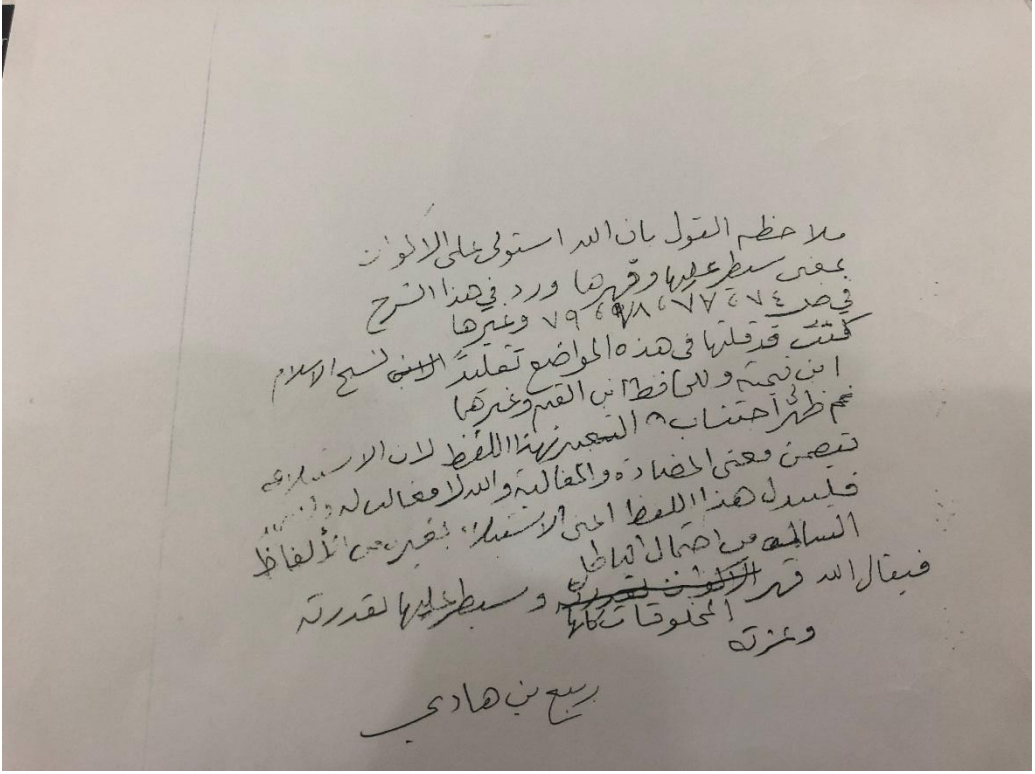 ملاحظه القول بان الله استولى على الاكوان
بمعنى سيطر عليها وقهرها ورد في هذا الشرح
في ص ٧٤، ٧٧، ٧٨، ٧٩ وغيرها
كنت قد قلتها في هذه المواضع تقليدً لشيخ الاسلام
ابن تيمية وللحافظ ابن القيم وغيرهما
ثم ظهر لي اجتناب التعبير بهذا اللفظ لان الاستيلاء
تيضمن معنى المضادة والمغالبة والله لا مغالب له
فليبدل هذا اللفظ اعني الاستيلاء بغيره من الألفاظ
السالمه من احتمال الباطل
فيقال الله قهر المخلوقات كلها وسيطر عليها بقدرته
وعزته
ربيع بن هادي